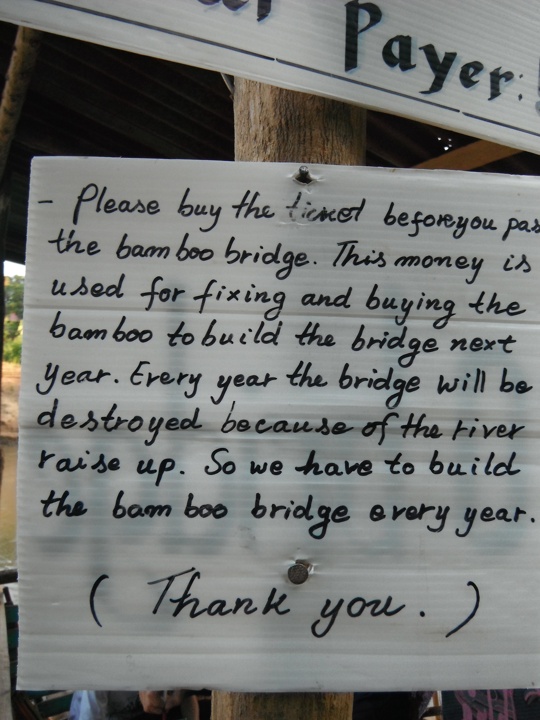 Payer:
- Please buy the ticket before you pas
the bamboo bridge. This money is
used for fixing and buying the
bamboo to build the bridge next
year. Every year the bridge will be
destroyed because of the river
raise up. So we have to build
the bamboo bridge every year.
( Thank you. )